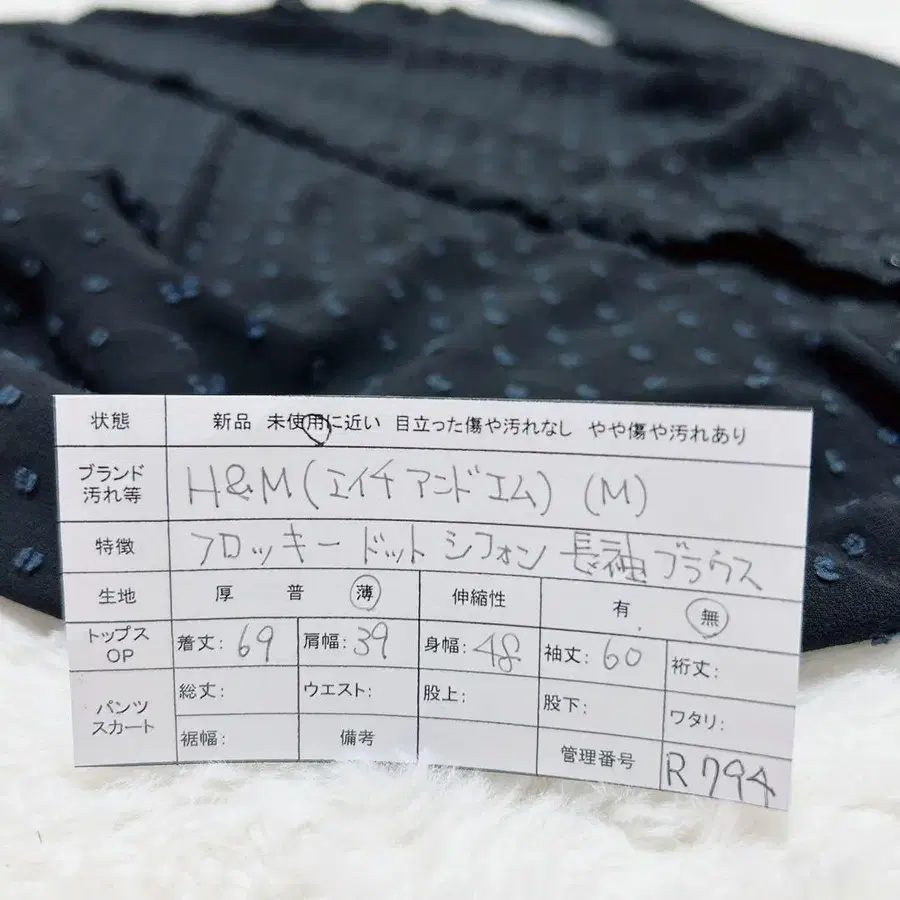 状態 新品 未使用に近い 目立った傷や汚れなし やや傷や汚れあり
ブランド
汚れ等 H&M(エイチアンドエム) (M)
特徴 フロッキー ドット シフォン 長袖 ブラウス
生地 厚 普 薄 伸縮性 有 無
トップス
OP 着丈: 69 肩幅: 39 身幅: 48 袖丈: 60 裄丈:
パンツ
スカート 総丈: ウエスト: 股上: 股下: ワタリ:
裾幅: 備考 管理番号 R794